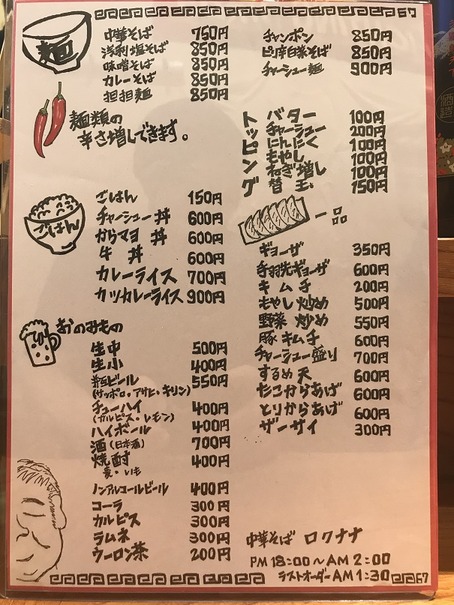 麺
中華そば 750円
浅利塩そば 850円
味噌そば 850円
カレーそば 850円
担担麺 850円
チャンポン 850円
ピリ辛白菜そば 850円
チャーシュー麺 900円
麺類の
辛さ増しできます。
トッピング
バター 100円
チャーシュー 200円
にんにく 100円
もやし 100円
ねぎ増し 100円
替玉 150円
ごはん
ごはん 150円
チャーシュー丼 600円
からマヨ丼 600円
牛丼 600円
カレーライス 700円
カツカレーライス 900円
一品
ギョーザ 350円
手羽先ギョーザ 600円
キムチ 200円
もやし炒め 500円
野菜炒め 550円
豚キムチ 600円
チャーシュー盛り 700円
するめ天 600円
たこからあげ 600円
とりからあげ 600円
ザーサイ 300円
おのみもの
生中 500円
生小 400円
ビール 550円
(サッポロ・アサヒ・キリン)
チューハイ 400円
(カルピス・レモン)
ハイボール 400円
酒(日本酒) 700円
焼酎 400円
麦・いも
ノンアルコールビール 400円
コーラ 300円
カルピス 300円
ラムネ 300円
ウーロン茶 200円
中華そば ロクナナ
PM 18:00〜AM 2:00
ラストオーダーAM 1:30
67
67